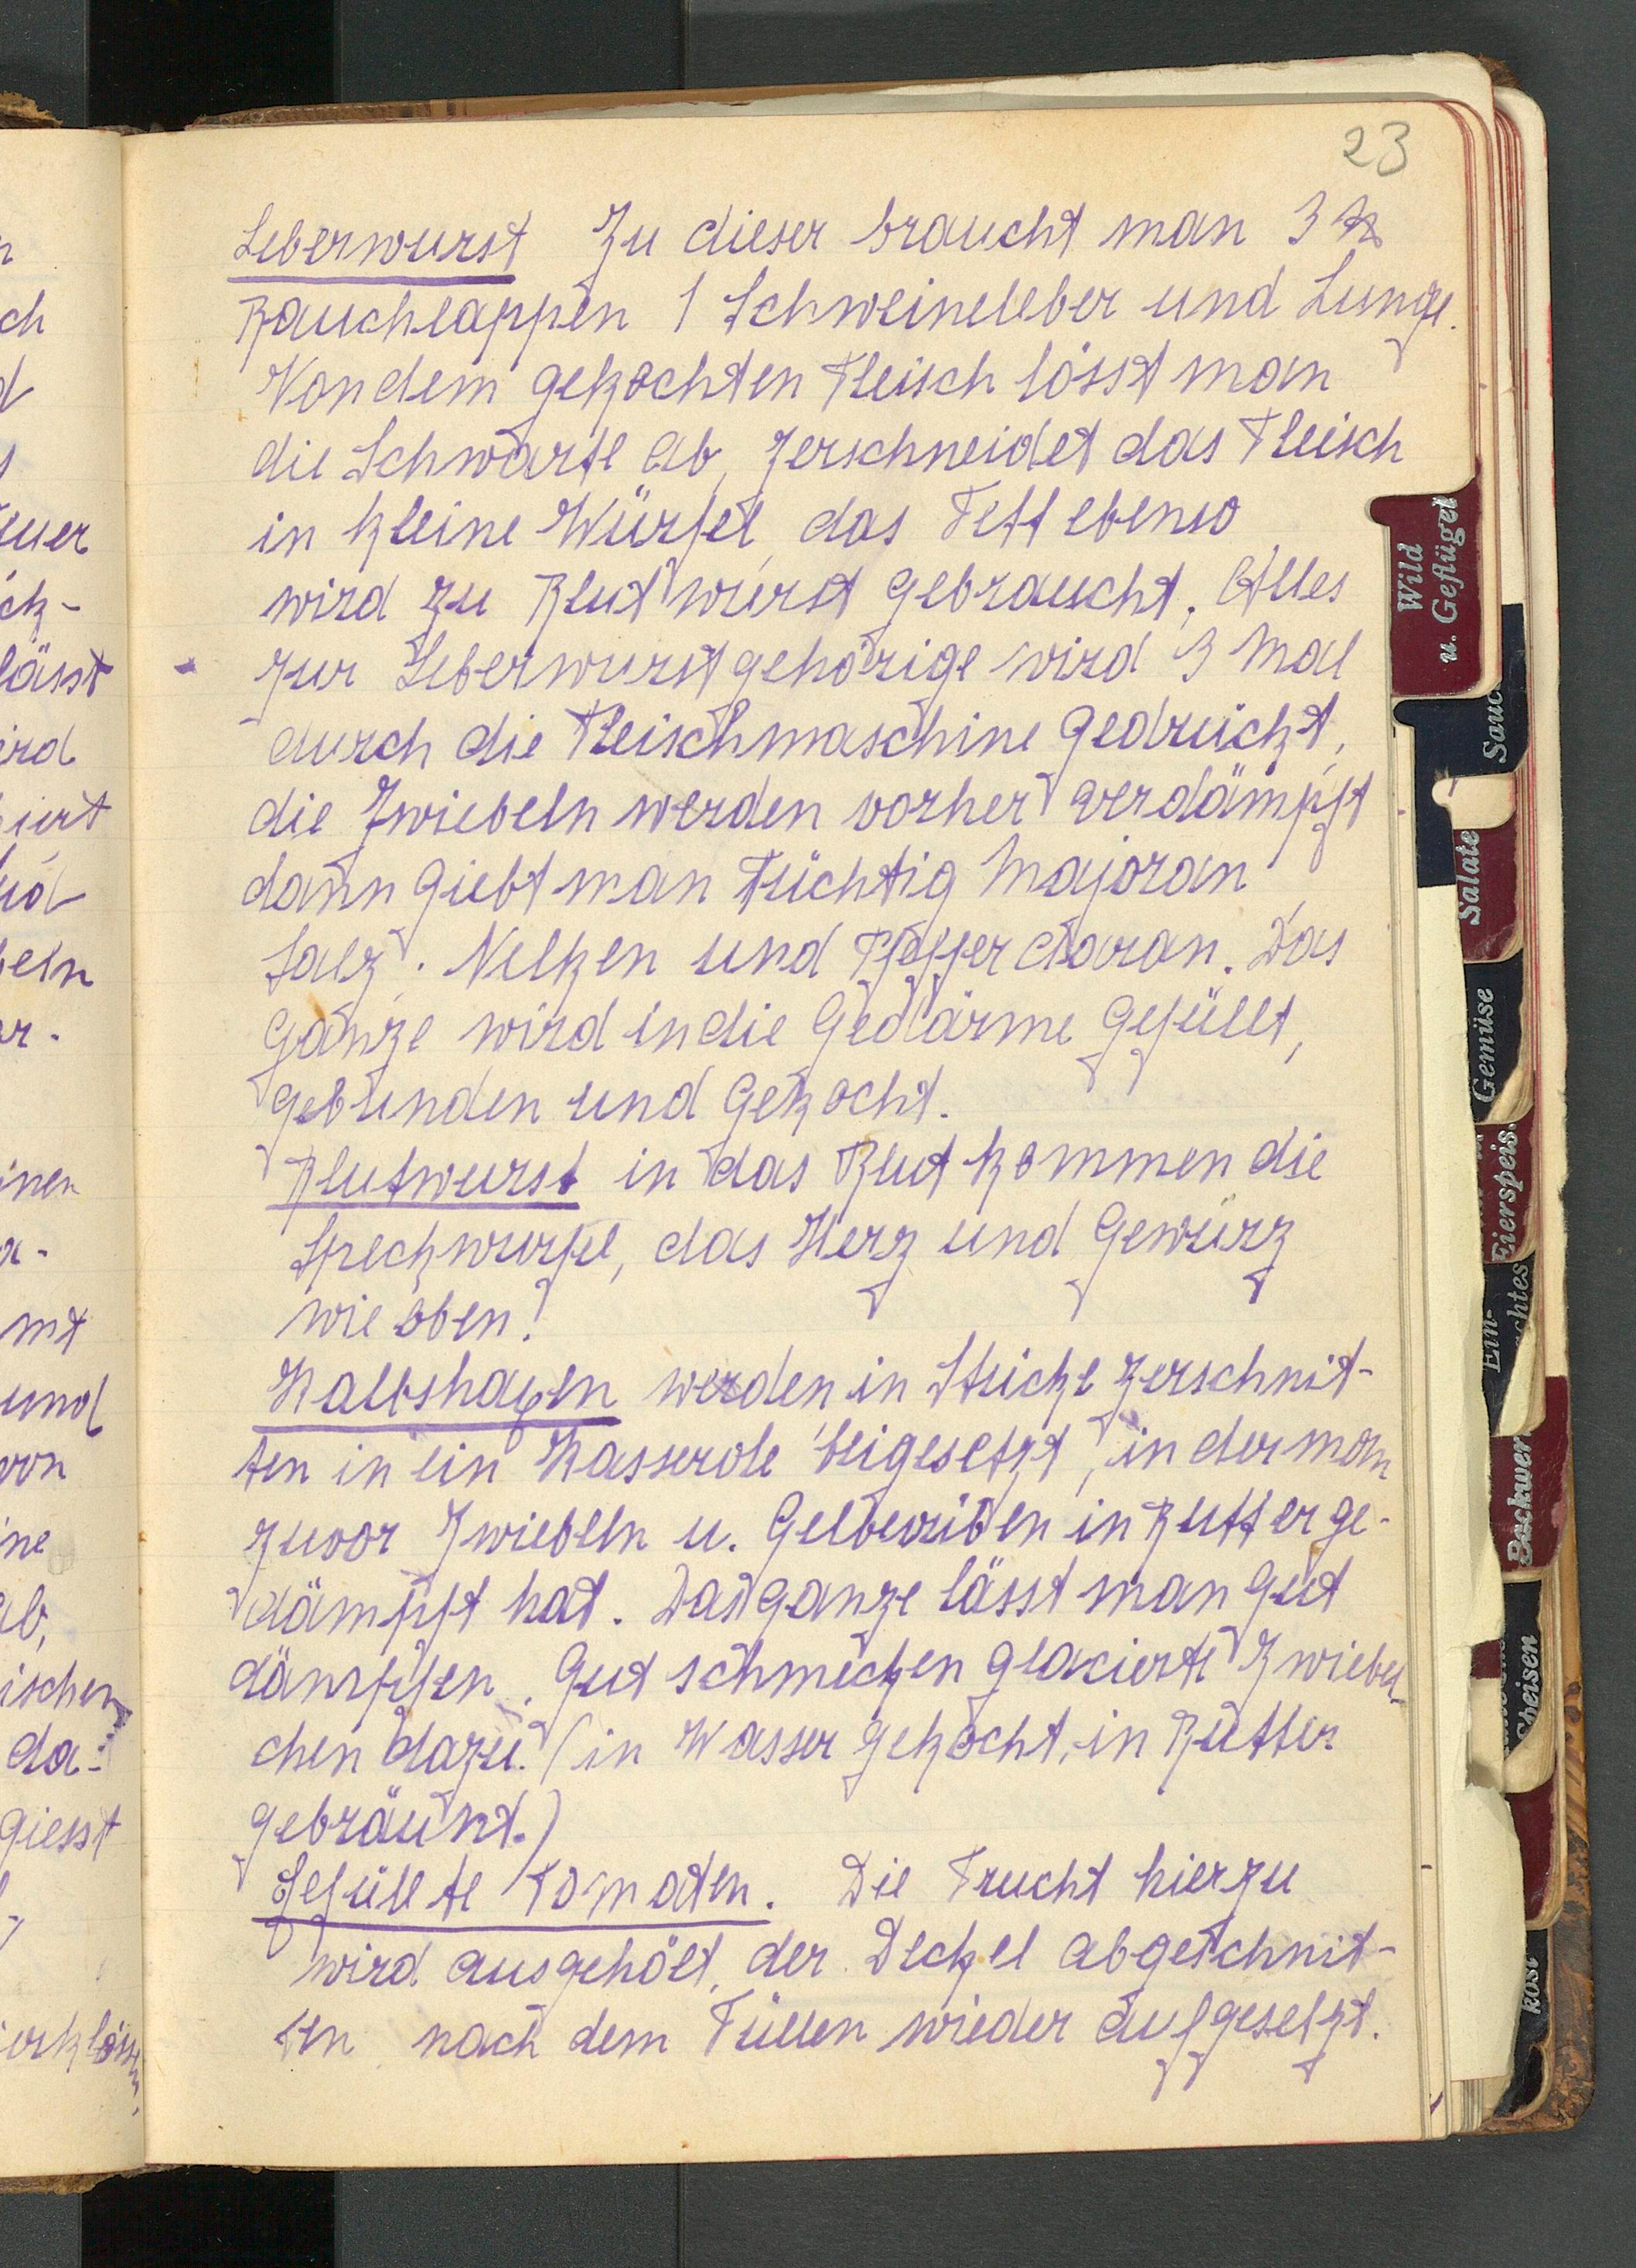 23
Leberwurst Zu dieser braucht man 3 ℔
Bauchlappen 1 Schweineleber und Lunge.
Von dem gekochten Fleisch lösst man
die Schwarte ab, zerschneidet das Fleisch
in kleine Würfel, das Fett ebenso
wird zu Blutwurst gebraucht. Alles
zur Leberwurst gehörige wird 3 Mal
durch die Fleischmaschine gedrückt,
die Zwiebeln werden vorher verdämpft
dann giebt man tüchtig Majoran,
Salz. Nelken und Pfeffer daran. Das
Ganze wird in die Gedärme gefüllt,
gebunden und gekocht.
Blutwurst in das Blut kommen die
Speckwürfel, das Herz und Gewürz
wie oben!
Kalbshaxen werden in Stücke zerschnit-
ten in ein Kasserole beigesetzt, in der man
zuvor Zwiebeln u. Gelberüben in Butter ge-
dämpft hat. Das ganze lässt man gut
dämpfen. Gut schmecken glacierte Zwiebel-
chen dazu. (in Wasser gekocht, in Butter
gebräunt.)
Gefüllte Tomaten. Die Frucht hierzu
wird ausgehölt, der Deckel abgeschnit-
ten nach dem Füllen wieder aufgesetzt.
Wild
u. Geflügel
Sauc
Salate
Gemüse
Eierspeis.
Ein-
achtes
Backwer
Speisen
kost